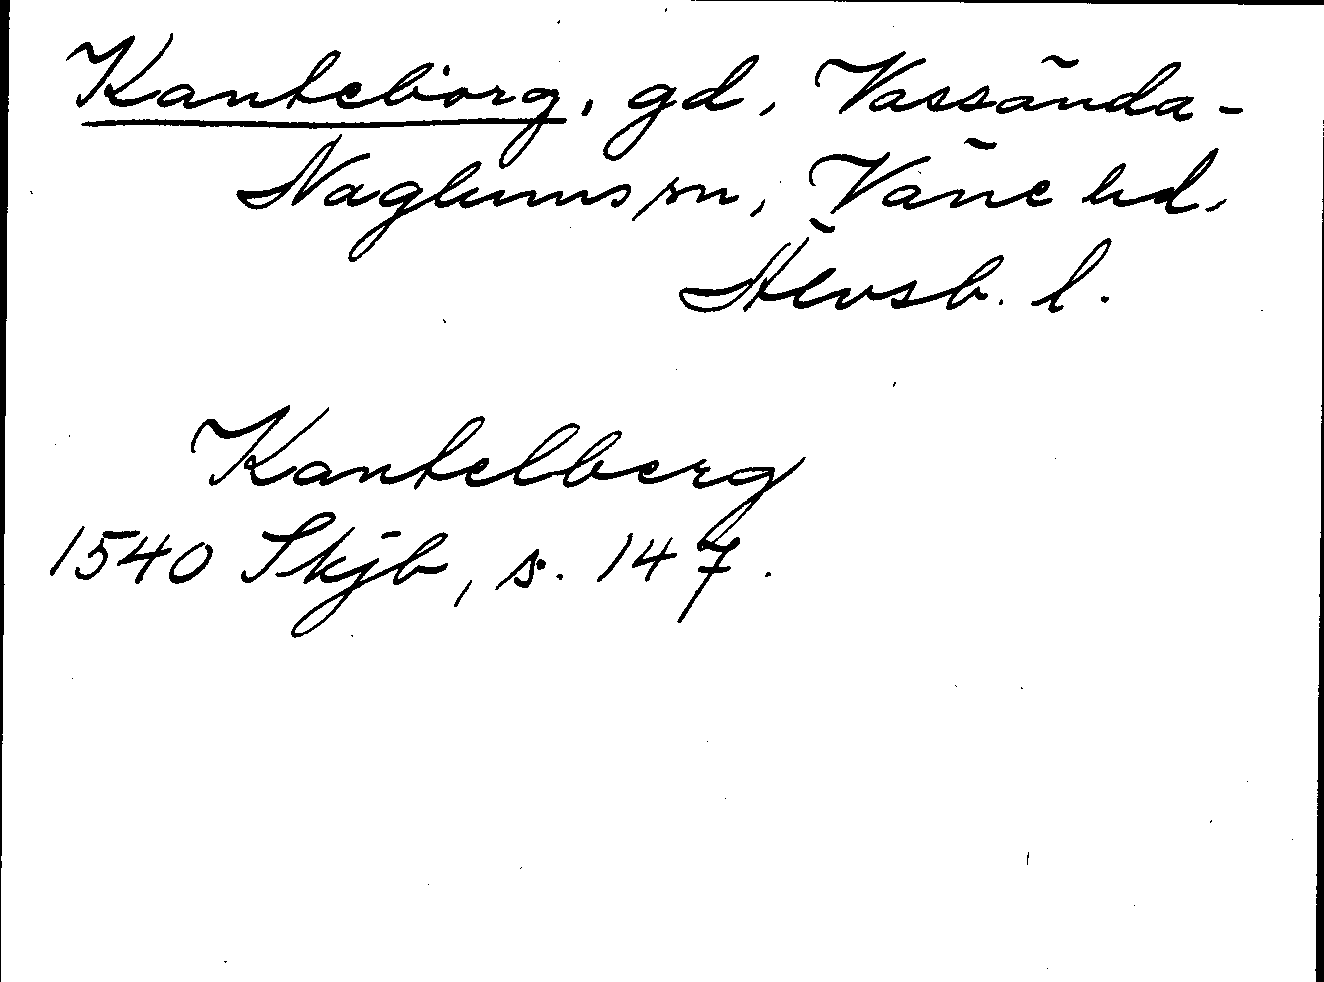 Kanteborg, gd, Vassända-
Naglums sn, Väne hd,
Älvsb. l.
Kantelberg
1540 Skjb, s. 147.